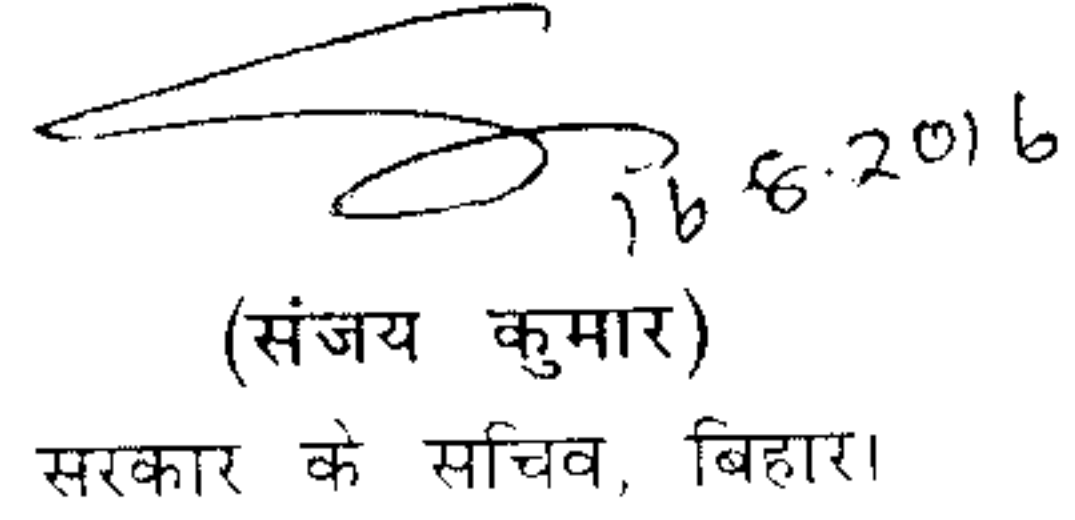 16.8.2016
(संजय कुमार)
सरकार के सचिव, बिहार।